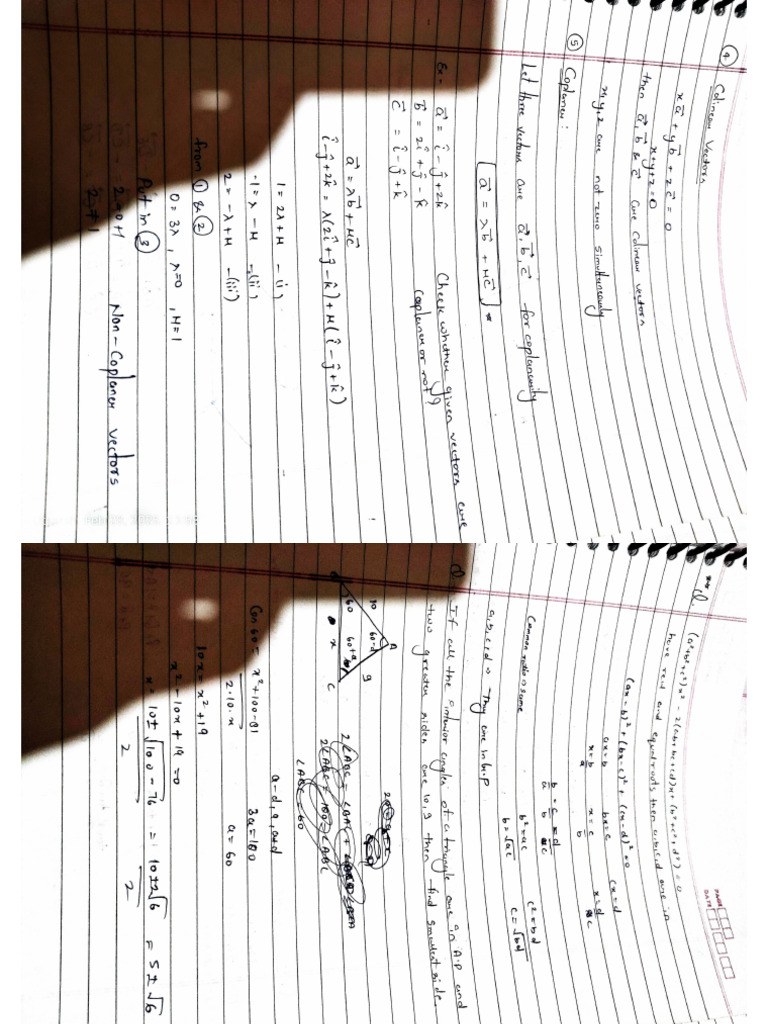 ④ Colinear Vectors
x a⃗ + y b⃗ + z c⃗ = 0
x+y+z=0
then a⃗, b⃗ & c⃗ are colinear vectors
x, y, z are not zero simultaneously
⑤ Coplaner :
Let three vectors are a⃗, b⃗, c⃗ for coplanarity.
a⃗ = λb⃗ + μc⃗
Ex:- a⃗ = î - ĵ + 2k̂ Check whether given vectors are
b⃗ = 2î + ĵ - k̂ coplaner or not?
c⃗ = î - ĵ + k̂
a⃗ = λb⃗ + μc⃗
î - ĵ + 2k̂ = λ(2î + ĵ - k̂) + μ(î - ĵ + k̂)
1 = 2λ + μ - (i)
-1 = λ - μ - (ii)
2 = -λ + μ - (iii)
from ① & ②
0 = 3λ, λ=0, μ=1
Put in ③
2 = 0+1
2 ≠ 1 Non-Coplaner vectors
PAGE
DATE
Q. (a²+b²+c²)x² - 2(ab+bc+cd)x + (b²+c²+d²) = 0
have real and equal roots then a,b,c,d are in
(ax-b)² + (bx-c)² + (cx-d)² = 0
ax=b bx=c cx=d
x=b/a x=c/b x=d/c
b/a = c/b = d/c
Common ratio is same b²=ac c²=bd
b=√ac c=√bd
a,b,c,d → They are in G.P
Q. If all the interior angles of a triangle are in A.P and
two greater sides are 10, 9 then find smallest side.
A
10 60-d 9
60 60+d
x C
2∠ABC =
∠ABC = 60
a-d, a, a+d
3a=180
a=60
Cos 60 = x²+100-81 / 2·10·x
10x = x²+19
x²-10x+19=0
x = 10±√100-76 / 2 = 10±2√6 / 2 = 5±√6